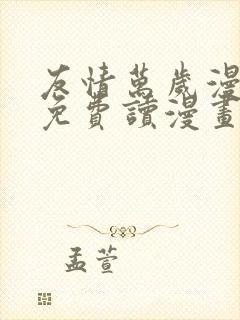 友情萬歲漫
免費讀漫畫
孟萱